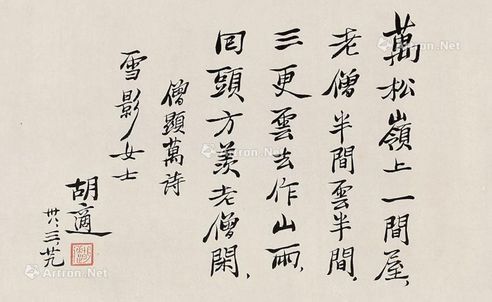 萬松嶺上一間屋、
老僧半間雲半間、
三更雲去作山雨、
囘頭方羨老僧閑、
僧顯萬詩
雪影女士
胡適
Artron.Net
Artron.Net
Artron.Net
Artron.Net